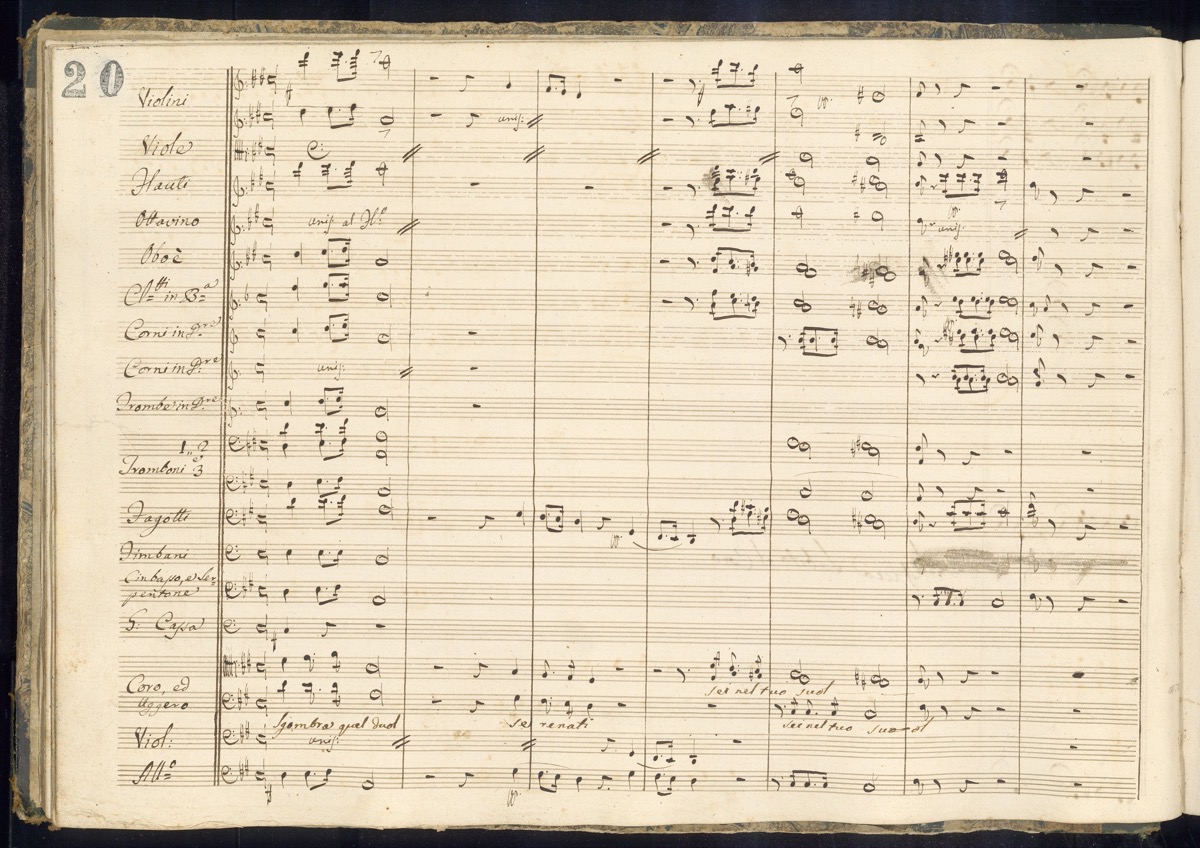 20
Violini
unis:
Viole
Flauti
Ottavino
unis al Fl:o
unis:
Oboè
Cl:tti in B:a
Corni in D:re
Corni in D:re
unis:
Trombe in D:re
1., 2
Tromboni e 3
Fagotti
Timbani
Cinbasso, e Ser=
pentone
G: Cassa
sei nel tuo suol
Coro, ed
Uggero
Sgombra quel duol
se renati
sei nel tuo suool
Viol:
unis: